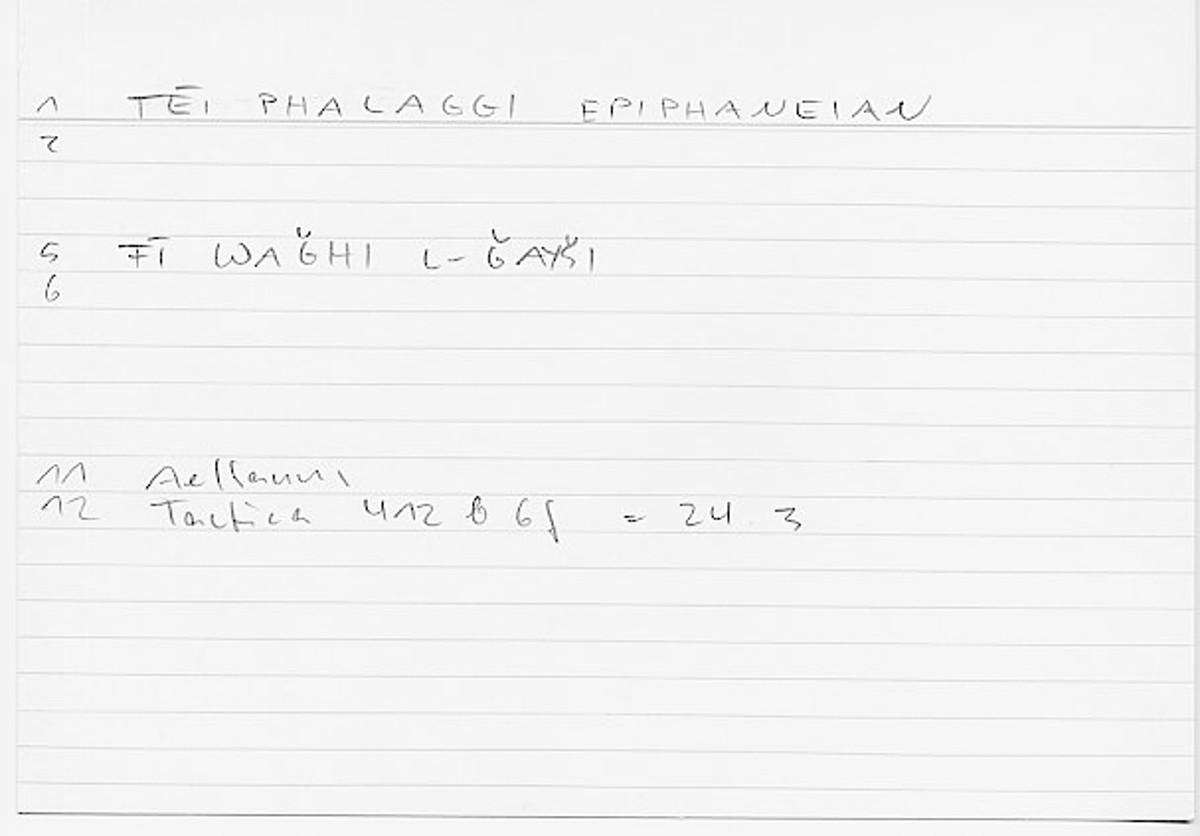 1 TĒI PHALAGGI EPIPHANEIAN
2
5 FĪ WAǦHI L-ǦAYŠI
6
11 Aelianus
12 Tactica 412 B 6f = 24.3